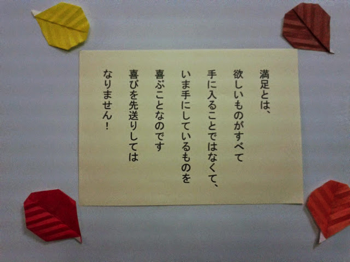 満足とは、
欲しいものがすべて
手に入ることではなくて、
いま手にしているものを
喜ぶことなのです
喜びを先送りしては
なりません！